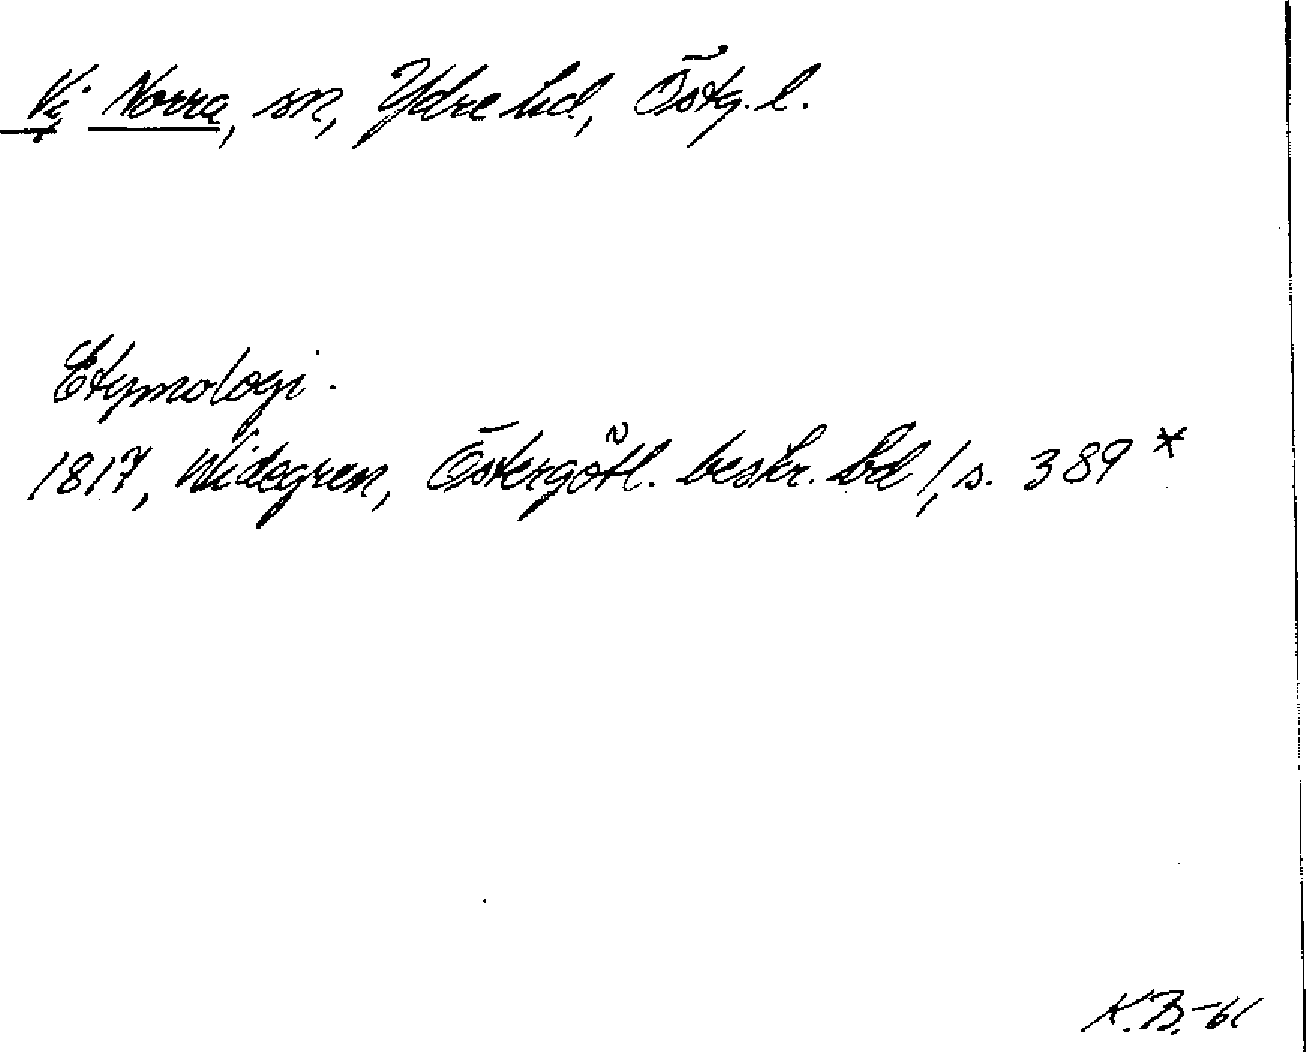 Vi, Norra, sn, Ydre hd, Östg. l.
Etymologi.
1817, Widegren, Östergötl. beskr. bd 1, s. 389 *
K.B.-61